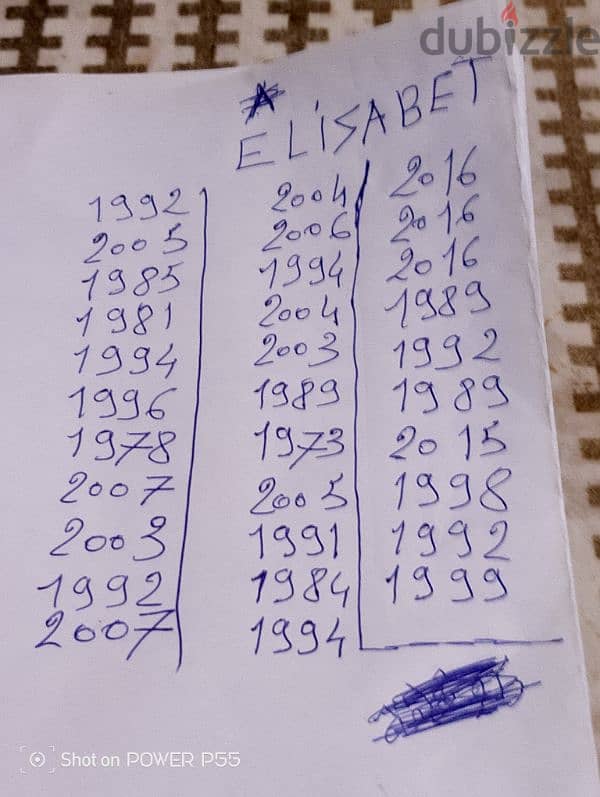 dubizzle
ELISABET
1992 2004 2016
2005 2006 2016
1985 1994 2016
1981 2004 1989
1994 2003 1992
1996 1989 1989
1978 1973 2015
2007 2005 1998
2003 1991 1992
1992 1984 1999
2007 1994
Shot on POWER P55